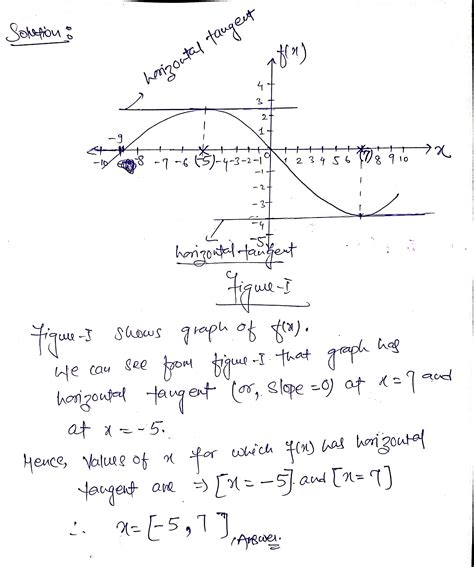 Solution :
horizontal tangent
f(x)
4
3
2
1
-9
-10 -8 -7 -6 (-5) -4 -3 -2 -1 0 1 2 3 4 5 6 (7) 8 9 10 x
-1
-2
-3
-4
-5
horizontal tangent
Figure-I
Figure-I shows graph of f(x).
We can see from figure-I that graph has
horizontal tangent (or, slope = 0) at x = 7 and
at x = -5.
Hence, values of x for which f(x) has horizontal
tangent are ⇒ [x = -5] and [x = 7]
∴ x = [-5, 7] Answer.